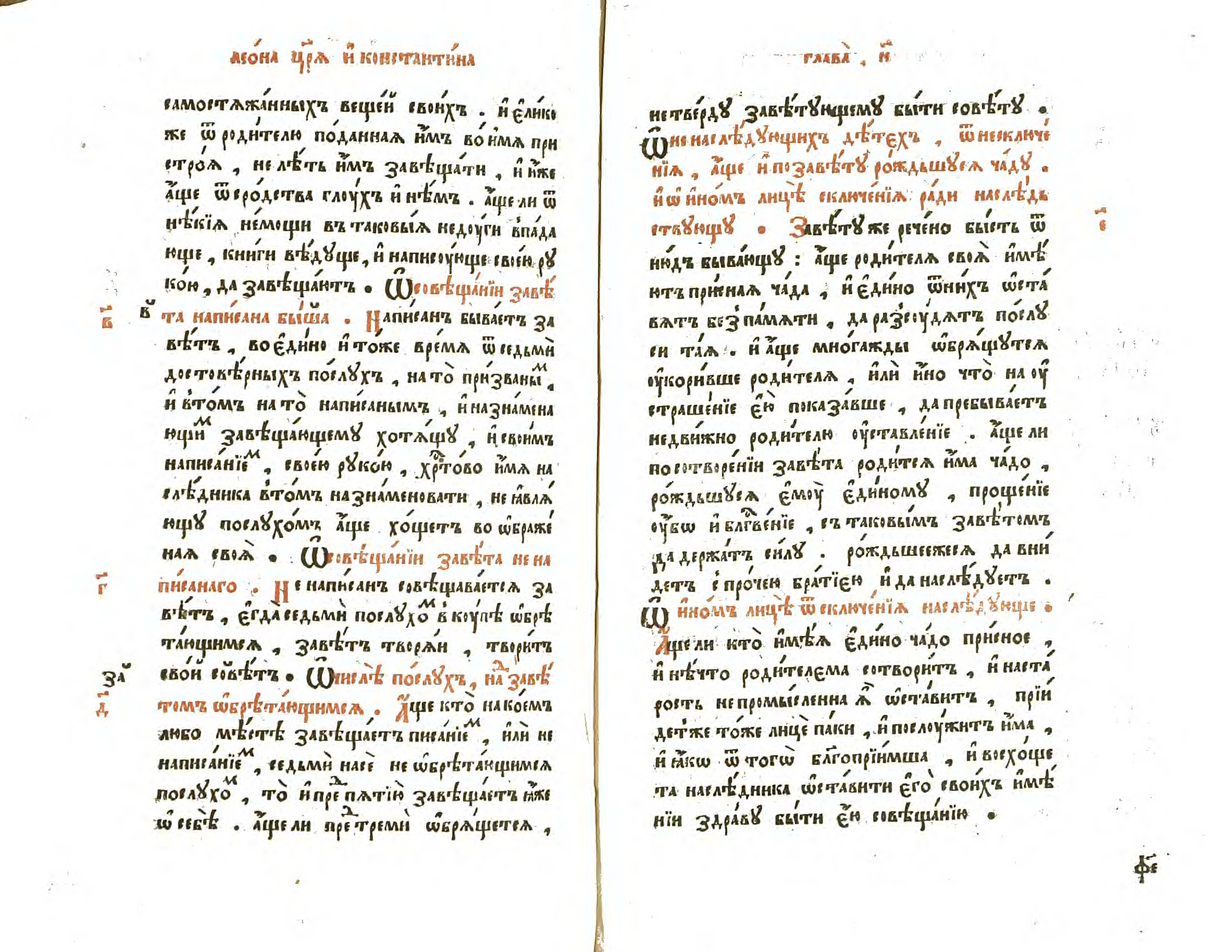 леѡ́на цр҃ѧ̀ и҆ константи́на
самостѧжа́нныхъ веще́й свои́хъ . и҆ є҆ли́ко
же ѿ роди́телю по́даннаѧ и҆́мъ во и҆́мѧ при
стро́ѧ , не лѣ́ть и҆́мъ завѣща́ти , и҆ и҆́же
а҆́ще ѿ сро́дства глоу́хъ и҆ нѣ́мъ . а҆́ще ли ѿ
нѣ́кїѧ не́мощи въ таковы́ѧ недоу́ги впада́
юще , кни́ги вѣ́дуще , и҆ написоу́юще свое́ю рꙋ
ко́ю , да завѣща́ютъ . Ѿ совѣща́нїи завѣ́
в҃ в҃ та напи́сана бы́ша . Напи́санъ быва́етъ за
вѣ́тъ , во є҆ди́но и҆ то́же вре́мѧ ѿ седьми́
достовѣ́рныхъ по́слꙋхъ , на то̀ при́званыⷨ ,
и҆ в то́мъ на то̀ напи́санымъ , и҆ назна́мена
ющиⷨ завѣща́ющемꙋ хотѧ́щꙋ , и҆ свои́мъ
написа́нїеⷨ , свое́ю рꙋко́ю , хрⷭ҇то́во и҆́мѧ на
слѣ́дника в то́мъ назна́меновати , не ꙗ҆влѧ́
ющꙋ по́слꙋхомъ а҆́ще хо́щетъ во ѡ҆браже́
наѧ своѧ̀ . Ѿ совѣща́нїи завѣ́та не на
г҃ пи́санаго . Не напи́санъ совѣщава́етсѧ за
вѣ́тъ , є҆гда̀ седьмѝ по́слꙋхоⷨ в коу́пѣ ѡ҆брѣ
та́ющимсѧ , завѣ́тъ творѧ́и , твори́тъ
заⷱ҇ сво́й совѣ́тъ . Ѿ числѣ̀ по́слꙋхъ , наⷣ завѣ́
д҃ томъ ѡ҆брѣта́ющимсѧ . А҆́ще кто̀ на ко́емъ
любо мѣ́стѣ завѣща́етъ писа́нїеⷨ , и҆лѝ не
написа́нїеⷨ , седьмѝ на се́е не ѡ҆брѣта́ющимсѧ
по́слꙋхоⷨ , то̀ и҆ преⷣ пѧтїю̀ завѣща́етъ ꙗ҆́же
ѡ҆ себѣ̀ . а҆́ще ли преⷣ тремѝ ѡ҆брѧ́щетсѧ ,
глава̀ , н҃
не тве́рдꙋ завѣ́тꙋющемꙋ бы́ти совѣ́тꙋ .
Ѿ не наслѣ́дꙋющихъ дѣ́тєхъ , ѿ не сключе́
нїѧ , а҆́ще и҆ по завѣ́тꙋ ро́ждьшꙋсѧ ча́дꙋ .
и҆ ѡ҆ и҆но́мъ лицѣ̀ сключе́нїѧ ра́ди наслѣ́дь
е҃ ствꙋющꙋ . Завѣ́тꙋ же рече́но бы́сть ѿ
ню́дъ быва́ющꙋ : а҆́ще роди́телѧ своѧ̀ и҆мѣ́
ютъ при́снаѧ ча́да , и҆ є҆ди́но ѿ ни́хъ ѡ҆ста́
вѧтъ без̾ па́мѧти , да раз̾сꙋ́дѧтъ по́слꙋ
си та́ѧ . и҆ а҆́ще мно́гажды ѡ҆брѧ́щꙋтсѧ
оу҆кори́вше роди́телѧ , и҆лѝ и҆́но что̀ на оу҆
страше́нїе є҆ю̀ показа́вше , да пребыва́етъ
недви́жно роди́телю оу҆ставле́нїе . а҆́ще ли
по сотворе́нїи завѣ́та роди́тсѧ и҆́ма ча́до ,
ро́ждьшꙋсѧ є҆моу̀ є҆ди́номꙋ , проще́нїе
оу҆́бѡ и҆ блгⷭ҇ве́нїе , съ таковы́мъ завѣ́томъ
да держа́тъ си́лꙋ . ро́ждьшеежесѧ да вни́
детъ с про́чею бра́тїєю и҆ да наслѣ́дꙋетъ .
Ѿ и҆но́мъ лицѣ̀ ѿ сключе́нїѧ наслѣ́дꙋюще .
А҆́ще ли кто̀ и҆мѣ́ѧ є҆ди́но ча́до при́сное ,
и҆ нѣ́что роди́телєма сотвори́тъ , и҆ на ста́
рость не промы́сленна ѧ҆̀ ѡ҆ста́витъ , прїи́
детже то́же лицѐ па́ки , и҆ послоу́житъ и҆́ма ,
и҆ ꙗ҆́кѡ ѿ тогѡ̀ бл҃гопрїи́мша , и҆ восхо́ще
та наслѣ́дника ѡ҆ста́вити є҆го̀ свои́хъ и҆мѣ́
нїи здра́вꙋ бы́ти є҆ю̀ совѣща́нїю .
ф҃е